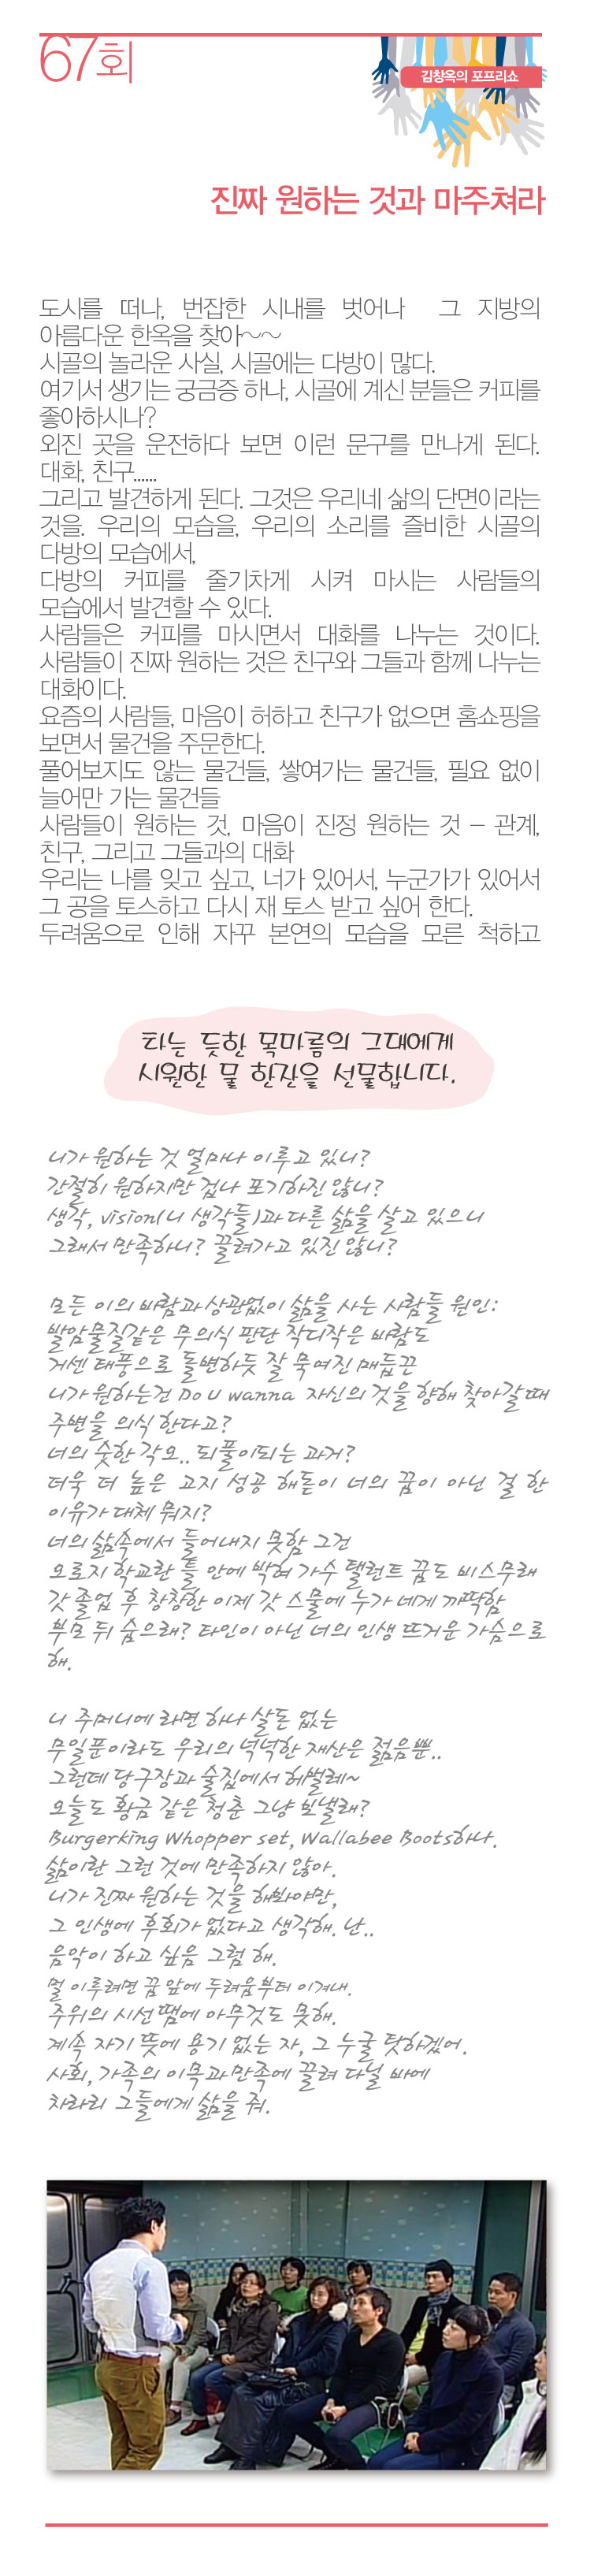 67회
김창옥의 포프리쇼
진짜 원하는 것과 마주쳐라
도시를 떠나, 번잡한 시내를 벗어나 그 지방의
아름다운 한옥을 찾아~~
시골의 놀라운 사실, 시골에는 다방이 많다.
여기서 생기는 궁금증 하나, 시골에 계신 분들은 커피를
좋아하시나?
외진 곳을 운전하다 보면 이런 문구를 만나게 된다.
대화, 친구......
그리고 발견하게 된다. 그것은 우리네 삶의 단면이라는
것을. 우리의 모습을, 우리의 소리를 즐비한 시골의
다방의 모습에서,
다방의 커피를 줄기차게 시켜 마시는 사람들의
모습에서 발견할 수 있다.
사람들은 커피를 마시면서 대화를 나누는 것이다.
사람들이 진짜 원하는 것은 친구와 그들과 함께 나누는
대화이다.
요즘의 사람들, 마음이 허하고 친구가 없으면 홈쇼핑을
보면서 물건을 주문한다.
풀어보지도 않는 물건들, 쌓여가는 물건들, 필요 없이
늘어만 가는 물건들
사람들이 원하는 것, 마음이 진정 원하는 것 – 관계,
친구, 그리고 그들과의 대화
우리는 나를 잊고 싶고, 너가 있어서, 누군가가 있어서
그 공을 토스하고 다시 재 토스 받고 싶어 한다.
두려움으로 인해 자꾸 본연의 모습을 모른 척하고
타는 듯한 목마름의 그대에게
시원한 물 한잔을 선물합니다.
니가 원하는 것 얼마나 이루고 있니?
간절히 원하지만 겁나 포기하진 않니?
생각, vision(니 생각들)과 다른 삶을 살고 있으니
그래서 만족하니? 끌려가고 있진 않니?
모든 이의 바람과 상관없이 삶을 사는 사람들 원인:
발암물질같은 무의식 판단 작디작은 바람도
거센 태풍으로 돌변하듯 잘 묶여진 매듭끈
니가 원하는건 Do U wanna 자신의 것을 향해 찾아갈 때
주변을 의식 한다고?
너의 숱한 각오.. 되풀이되는 과거?
더욱 더 높은 고지 성공 해돋이 너의 꿈이 아닌 걸 한
이유가 대체 뭐지?
너의 삶속에서 들어내지 못함 그건
오로지 학교란 틀 안에 박혀 가수 탤런트 꿈도 비스무래
갓 졸업 후 창창한 이제 갓 스물에 누가 네게 까딱함
부모 뒤 숨으래? 타인이 아닌 너의 인생 뜨거운 가슴으로
해.
니 주머니에 라면 하나 살돈 없는
무일푼이라도 우리의 넉넉한 재산은 젊음뿐..
그런데 당구장과 술집에서 허벌레~
오늘도 황금 같은 청춘 그냥 보낼래?
Burgerking Whopper set, Wallabee Boots하나.
삶이란 그런 것에 만족하지 않아.
니가 진짜 원하는 것을 해봐야만,
그 인생에 후회가 없다고 생각해. 난..
음악이 하고 싶음 그럼 해.
멀 이루려면 꿈 앞에 두려움부터 이겨내.
주위의 시선땜에 아무것도 못해.
계속 자기 뜻에 용기 없는 자, 그 누굴 탓하겠어.
사회, 가족의 이목과 만족에 끌려 다닐 바에
차라리 그들에게 삶을 줘.